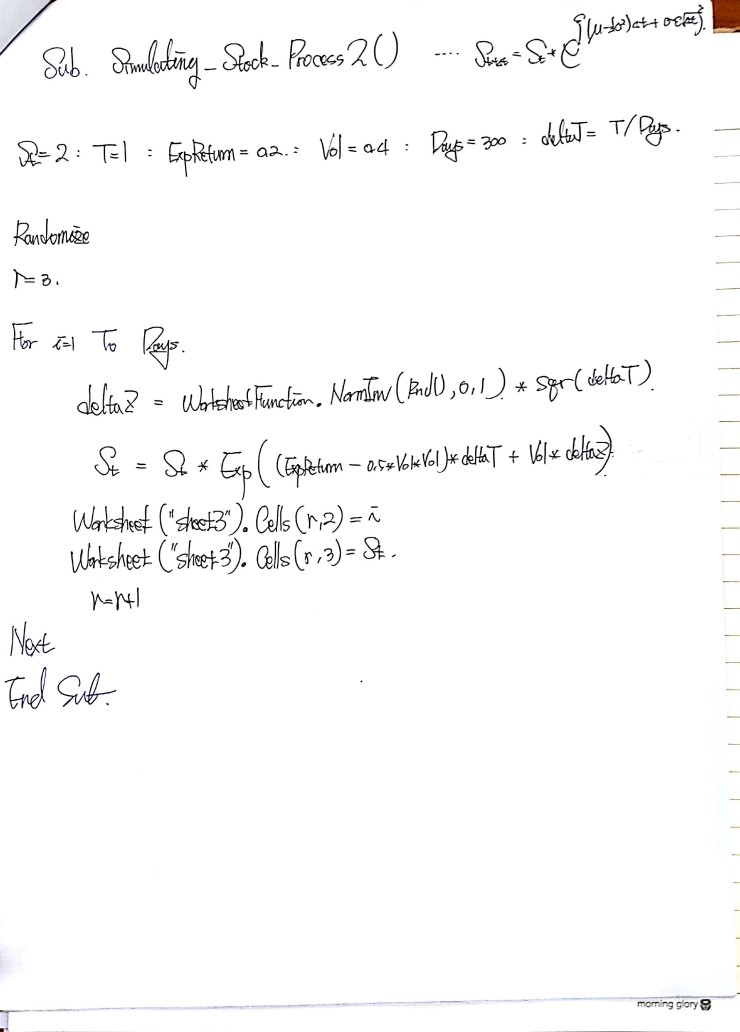 Sub. Simulating_Stock_Process2() .... St+Δt = St * e^{(μ-½σ²)Δt + σε√Δt}.
St=2 : T=1 : ExpReturn = 0.2 : Vol = 0.4 : Days = 300 : deltaT = T/Days.
Randomize
r=3.
For i=1 To Days.
deltaZ = WorksheetFunction.NormInv(Rnd(),0,1) * sqr(deltaT)
St = St * Exp((ExpReturn - 0.5*Vol*Vol)*deltaT + Vol*deltaZ)
Worksheet("sheet3").Cells(r,2) = i
Worksheet("sheet3").Cells(r,3) = St.
r=r+1
Next
End Sub.
morning glory